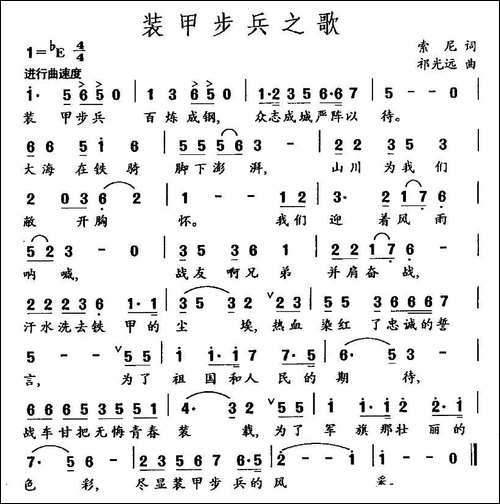 装甲步兵之歌
1=♭E 4/4
索尼 词
祁光远 曲
进行曲速度
i· 5 6 5 0 | 1 3 6 5 0 | 1·2 3 5 6·6 7 | 5 - - 0 |
装 甲步兵 百炼成钢, 众志成城严阵以 待。
6 6 5 i 6 | 5 5 5 6 5 | 3 - - | 2 2 1 6
大海 在铁骑 脚下澎湃, 山川 为我们
2 0 3 6 2 | 1 - - 1 2 | 3· 2 1 7 6
敞 开胸 怀。 我们 迎 着风雨
5 2 3 - 0 | 5 5 3 6 1 | 2 2 1 7 6
呐喊, 战友啊兄弟 并肩奋战,
2 2 2 3 6 1·1 | 3 5 3 2 | 2 3 2 3 6 6 6 7
汗水洗去铁 甲的尘 埃, 热血染红了忠诚的誓
5 - - 5 5 | i i·i i | 7 7·5 5 | 6· 5 3 -
言, 为了 祖国和人民的期 待,
6 6 6 5 3 5 5 1 | 4· 3 2 1 2 | 2·2 i 2 2·i
战车甘把无悔青春 装 载, 为了军旗那壮丽的
7· 5 6 - | 2 3 5 5 7 6·5 | 5 - - - | 5 - - 0
色 彩, 尽显装甲步兵的风 采。